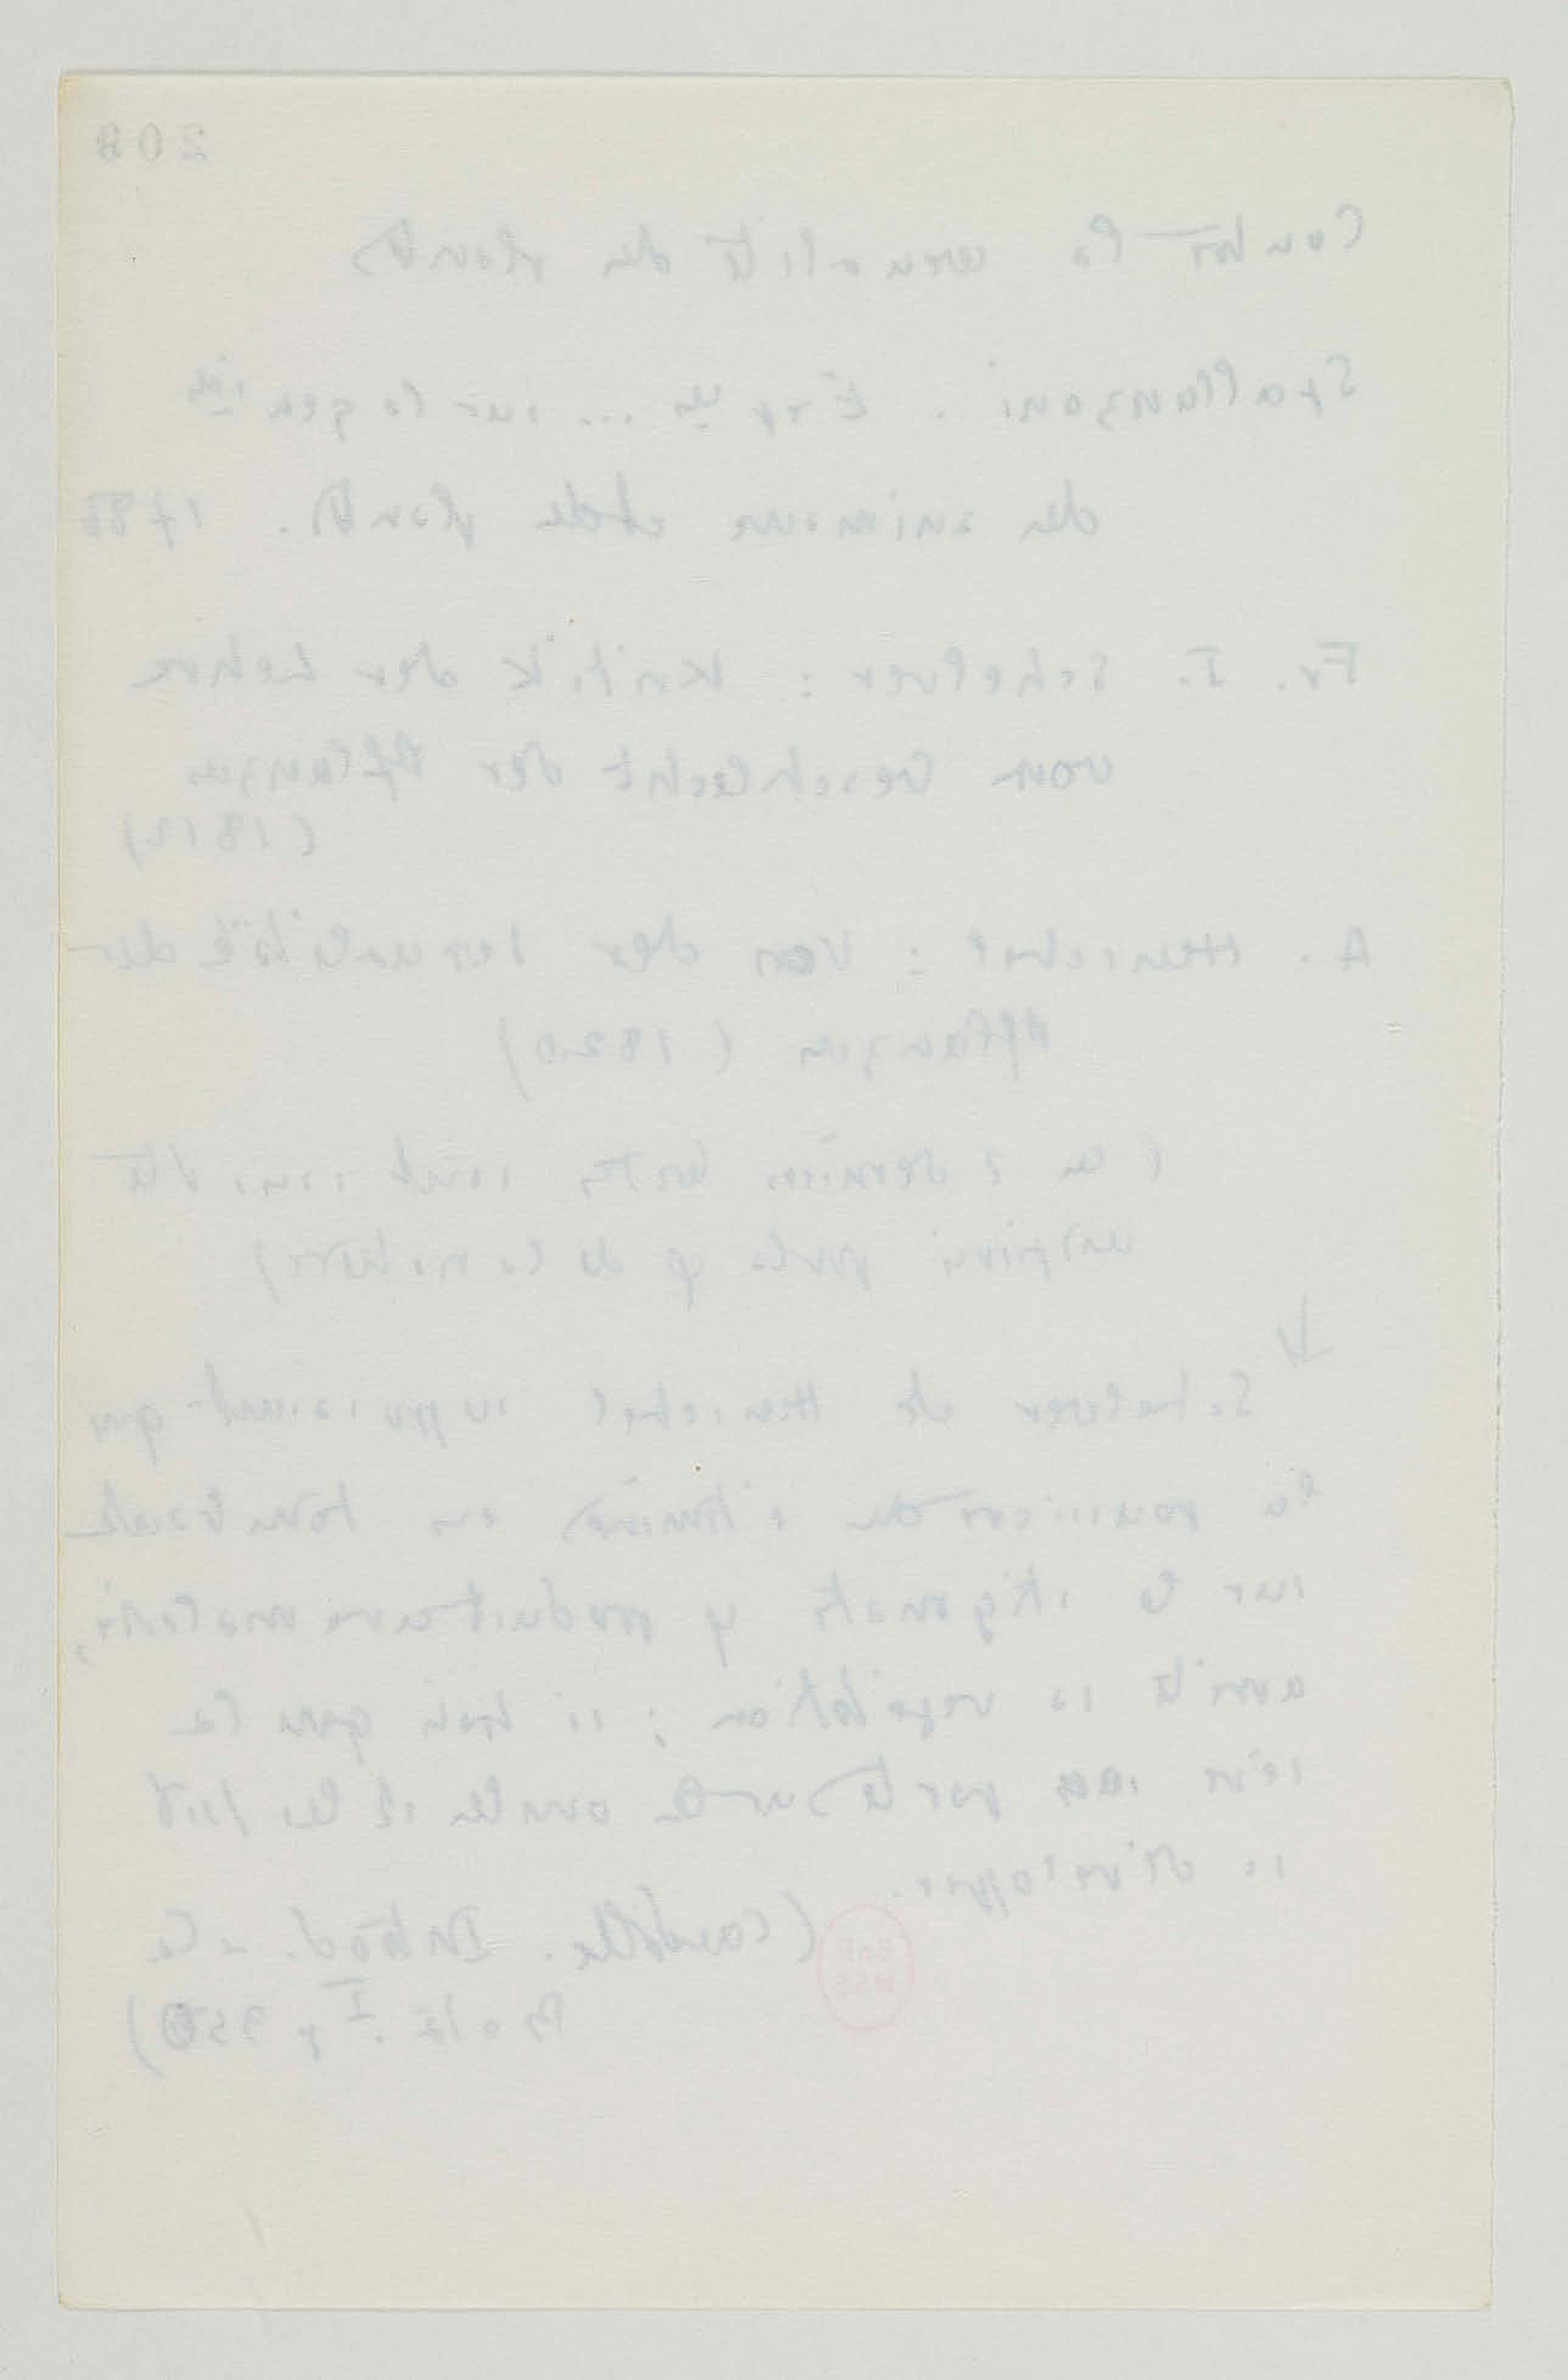 208
Contre la sexualité des plantes
Spallanzani. Exp ces ... sur la gén ion
des animaux et des plantes. 1786
Fr. J. Schelver : Kritik der Lehre
vom Geschlecht der Pflanzen
(1812)
A. Henschel : Von der Sexualität der
Pflanzen (1820)
(ces 2 derniers textes sont
inspirés par la φ de la nature)
↓
Schelver et Henschel supposaient que
la poussière des étamines en tombant
sur le stigmate y produit une
arrête sa végétation ;
sève se porte sur les ovules et les fait
se développer.
(Candolle. Introd. à la
Bota. I p 350)
BnF
MSS